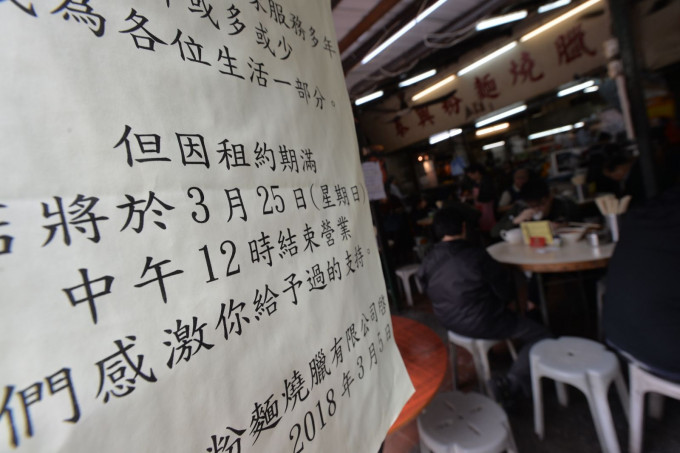 服務多年
或多或少
為各位生活一部分。
但因租約期滿
將於3月25日(星期日
中午12時結束營業
們感激你給予過的支持。
粉麵燒臘有限公司啓
2018年3月5日
興粉麵燒臘